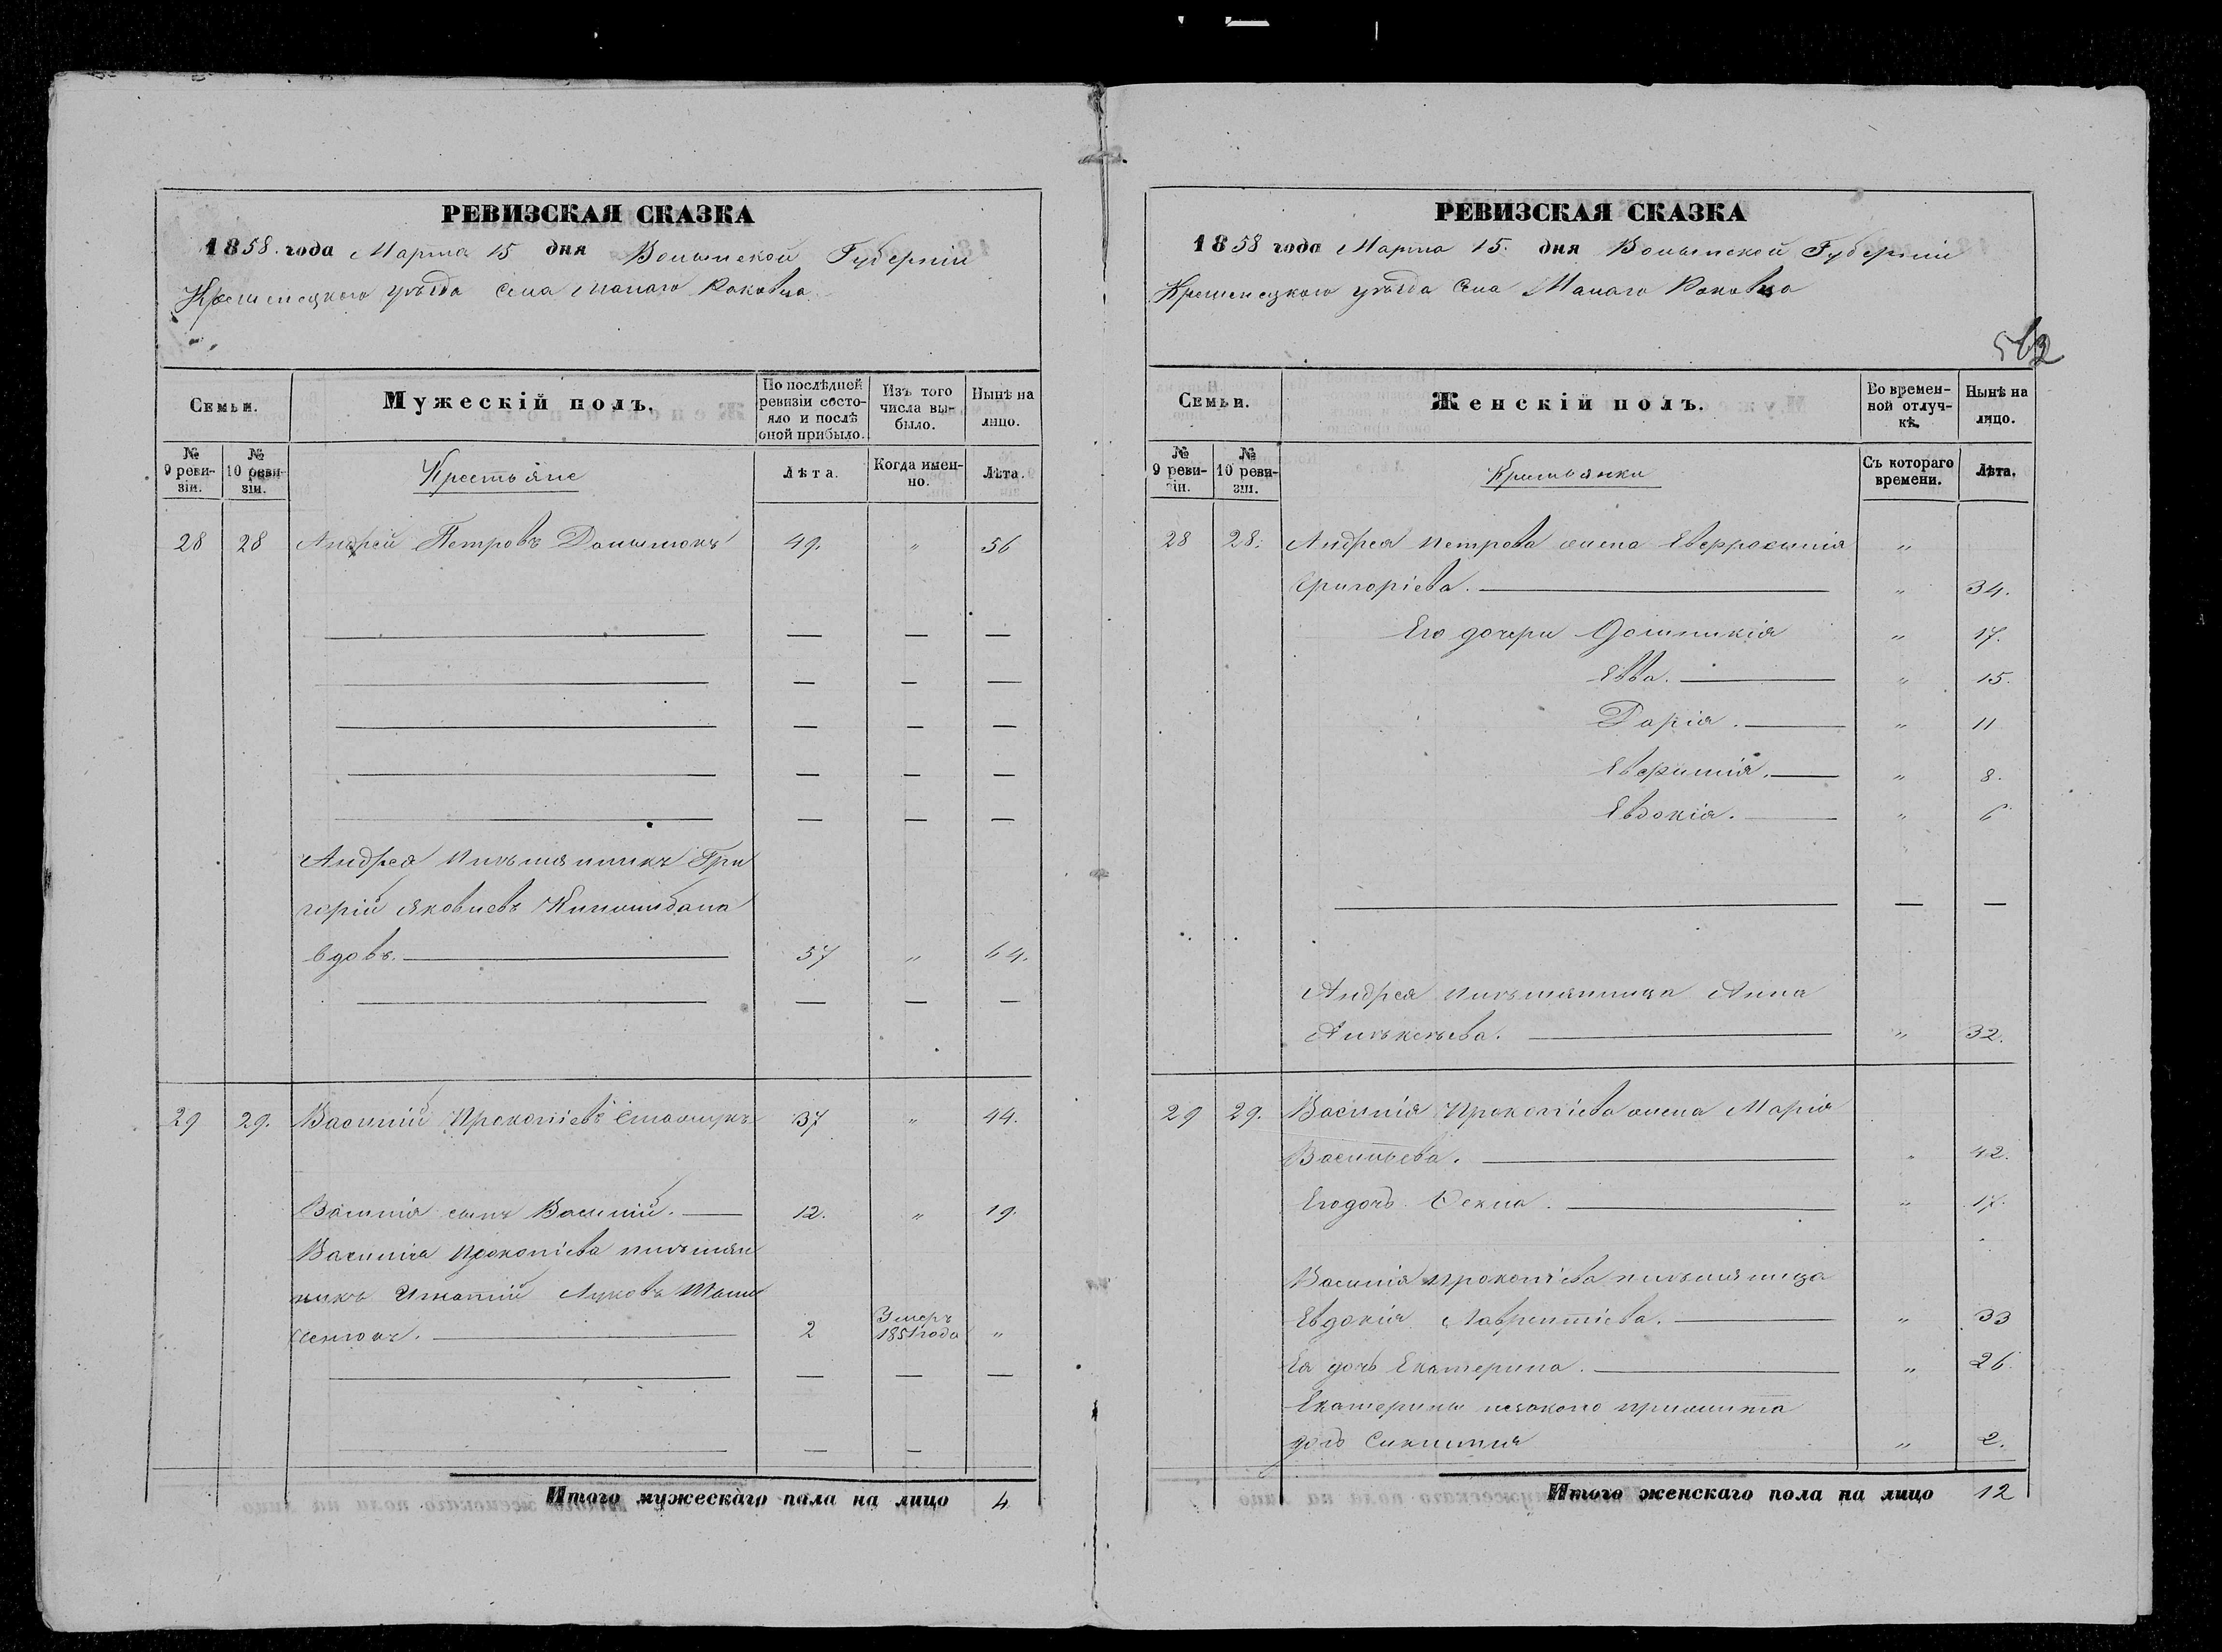 РЕВИЗСКАЯ СКАЗКА
1858. года Марта 15 дня Волынской Губерніи
Кременецкого уѣзда Села Малаго Раковца
Семьи.
Мужескій полъ.
По послѣдней ревизіи состояло и послѣ оной прибыло.
Изъ того числа выбыло.
Нынѣ на лицо.
№ 9 ревизіи.
№ 10 ревизіи.
Крестьяне
Лѣта.
Когда именно.
Лѣта.
28 28 Андрей Петровъ 49. " 56
Андрея племянникъ Гри
горій Яковлевъ
вдовъ. 57 " 64.
29 29. Василій Прокопіевъ 37 " 44.
Василія сынъ Василій. 12. " 19.
Василія Прокопіева племян
никъ Игнатій Луковъ
2 Умеръ 1851 года "
Итого мужескаго пола на лицо 4
РЕВИЗСКАЯ СКАЗКА
1858 года Марта 15. дня Волынской Губерніи
Кременецкого уѣзда Села Малаго Раковца
562
Семьи.
Женскій полъ.
Во временной отлучкѣ.
Нынѣ на лицо.
№ 9 ревизіи.
№ 10 ревизіи.
Крестьянки
Съ котораго времени.
Лѣта.
28 28. Андрея Петрова жена Евфросинія "
Григоріева. " 34.
Его дочери Доминикія " 17.
Евва. " 15.
Дарія. " 11
" 8.
Евдокія. " 6
Андрея племянница Анна
" 32.
29 29. Василія Прокопіева жена Марія
Васильева. " 42.
Его дочь Оекла. " 17.
Василія Прокопіева племянница
Евдокія Лаврентіева. " 33
Ея дочь Екатерина. " 26
Екатерины незаконо прижита
дочь " 2.
Итого женскаго пола на лицо 12